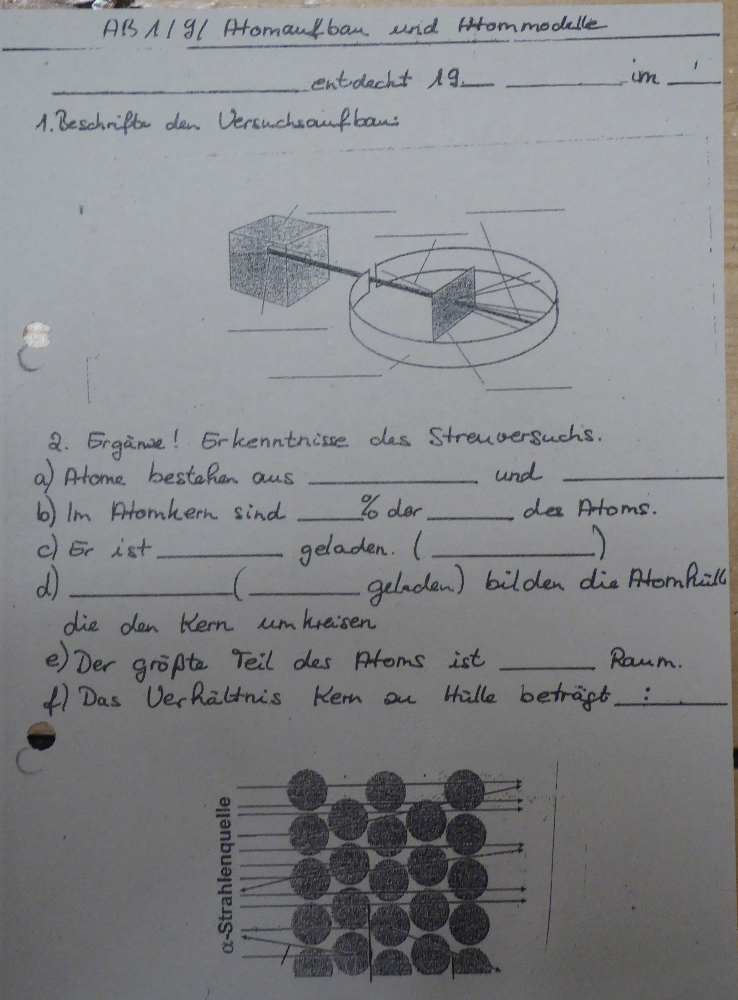 AB 1/9/ Atomaufbau und Atommodelle
____________ entdeckt 19__ ________ im ___
1. Beschrifte den Versuchsaufbau:
2. Ergänze! Erkenntnisse des Streuversuchs.
a) Atome bestehen aus ____________ und ____________
b) Im Atomkern sind ____% der ______ des Atoms.
c) Er ist ________ geladen. (____________)
d) ____________(________ geladen) bilden die Atomhülle
die den Kern umkreisen
e) Der größte Teil des Atoms ist ______ Raum.
f) Das Verhältnis Kern zu Hülle beträgt __:____
α-Strahlenquelle